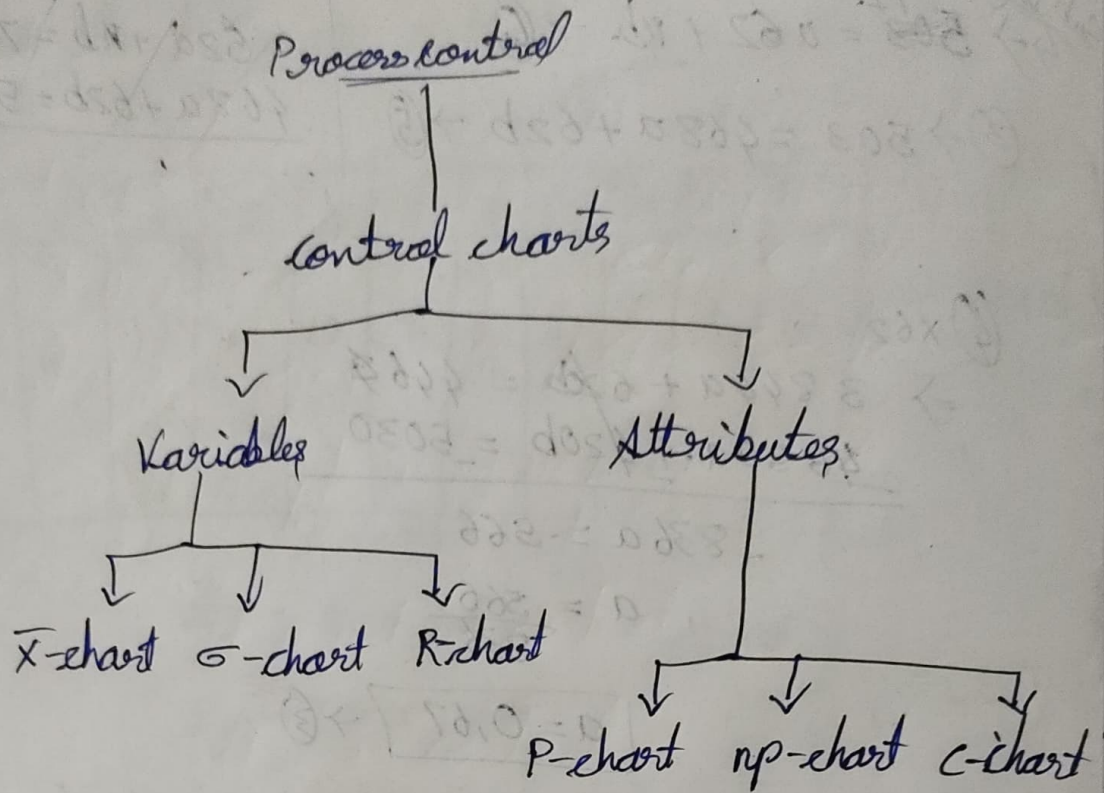 Process control
control charts
Variables Attributes
X̅-chart σ-chart R-chart
P-chart np-chart C-chart